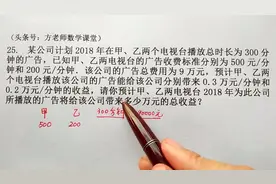 (头条号：方老师数学课堂)
25. 某公司计划 2018 年在甲、乙两个电视台播放总时长为 300 分
钟的广告，已知甲、乙两电视台的广告收费标准分别为 500 元/分
钟和 200 元/分钟，该公司的广告总费用为 9 万元，预计甲、乙两
个电视台播放该公司的广告能给该公司分别带来 0.3 万元/分钟和
0.2 万元/分钟的收益，请你预计甲、乙两电视台 2018 年为此公司
所播放的广告将给该公司带来多少万元的总收益？
甲 乙 300分钟 90000元
500 200